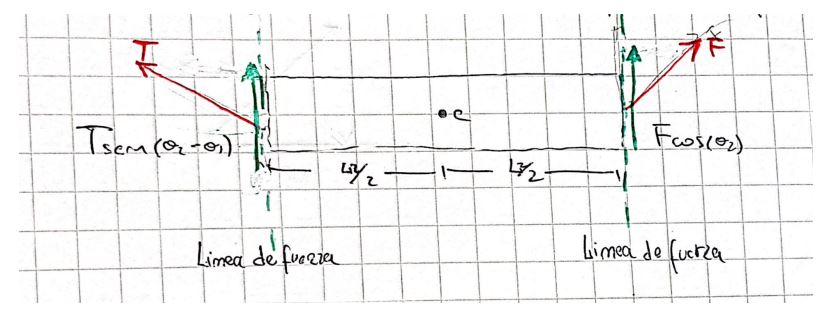 T
F
Tsen(θ2-θ1)
•C
Fcos(θ2)
L2/2
L2/2
Linea de fuerza
Linea de fuerza